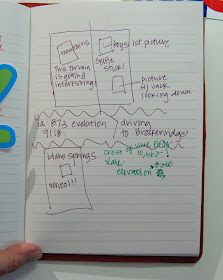 mountains
This terrain
is getting
interesting!
boys 1st picture
Selfie
Stick!
picture
w/ Jack
looking down
Ia 873 elevation
9118
driving
to Breckenridge
Idaho Springs
whee!!!
crest of Vail Pass
10,662
Vail
elevation
8200